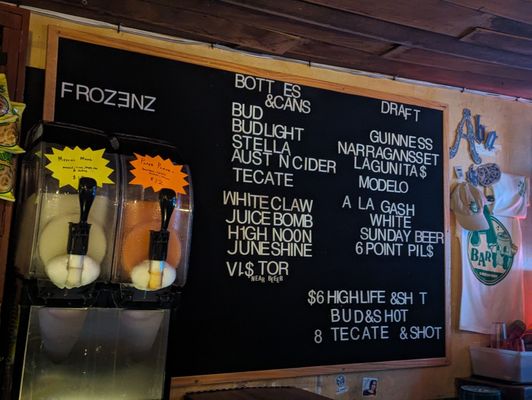 FROZENZ
BOTT ES
&CANS
BUD
BUDLIGHT
STELLA
AUST N CIDER
TECATE
WHITE CLAW
JUICE BOMB
H1GH NOON
JUNESHINE
VI$ TOR
NEAR BEEER
DRAFT
GUINNESS
NARRAGANSSET
LAGUNITA$
MODELO
A LA GASH
WHITE
SUNDAY BEER
6 POINT PIL$
$6 HIGHLIFE &SH T
BUD&SH0T
8 TECATE &SHOT
$12
Aba
BAR